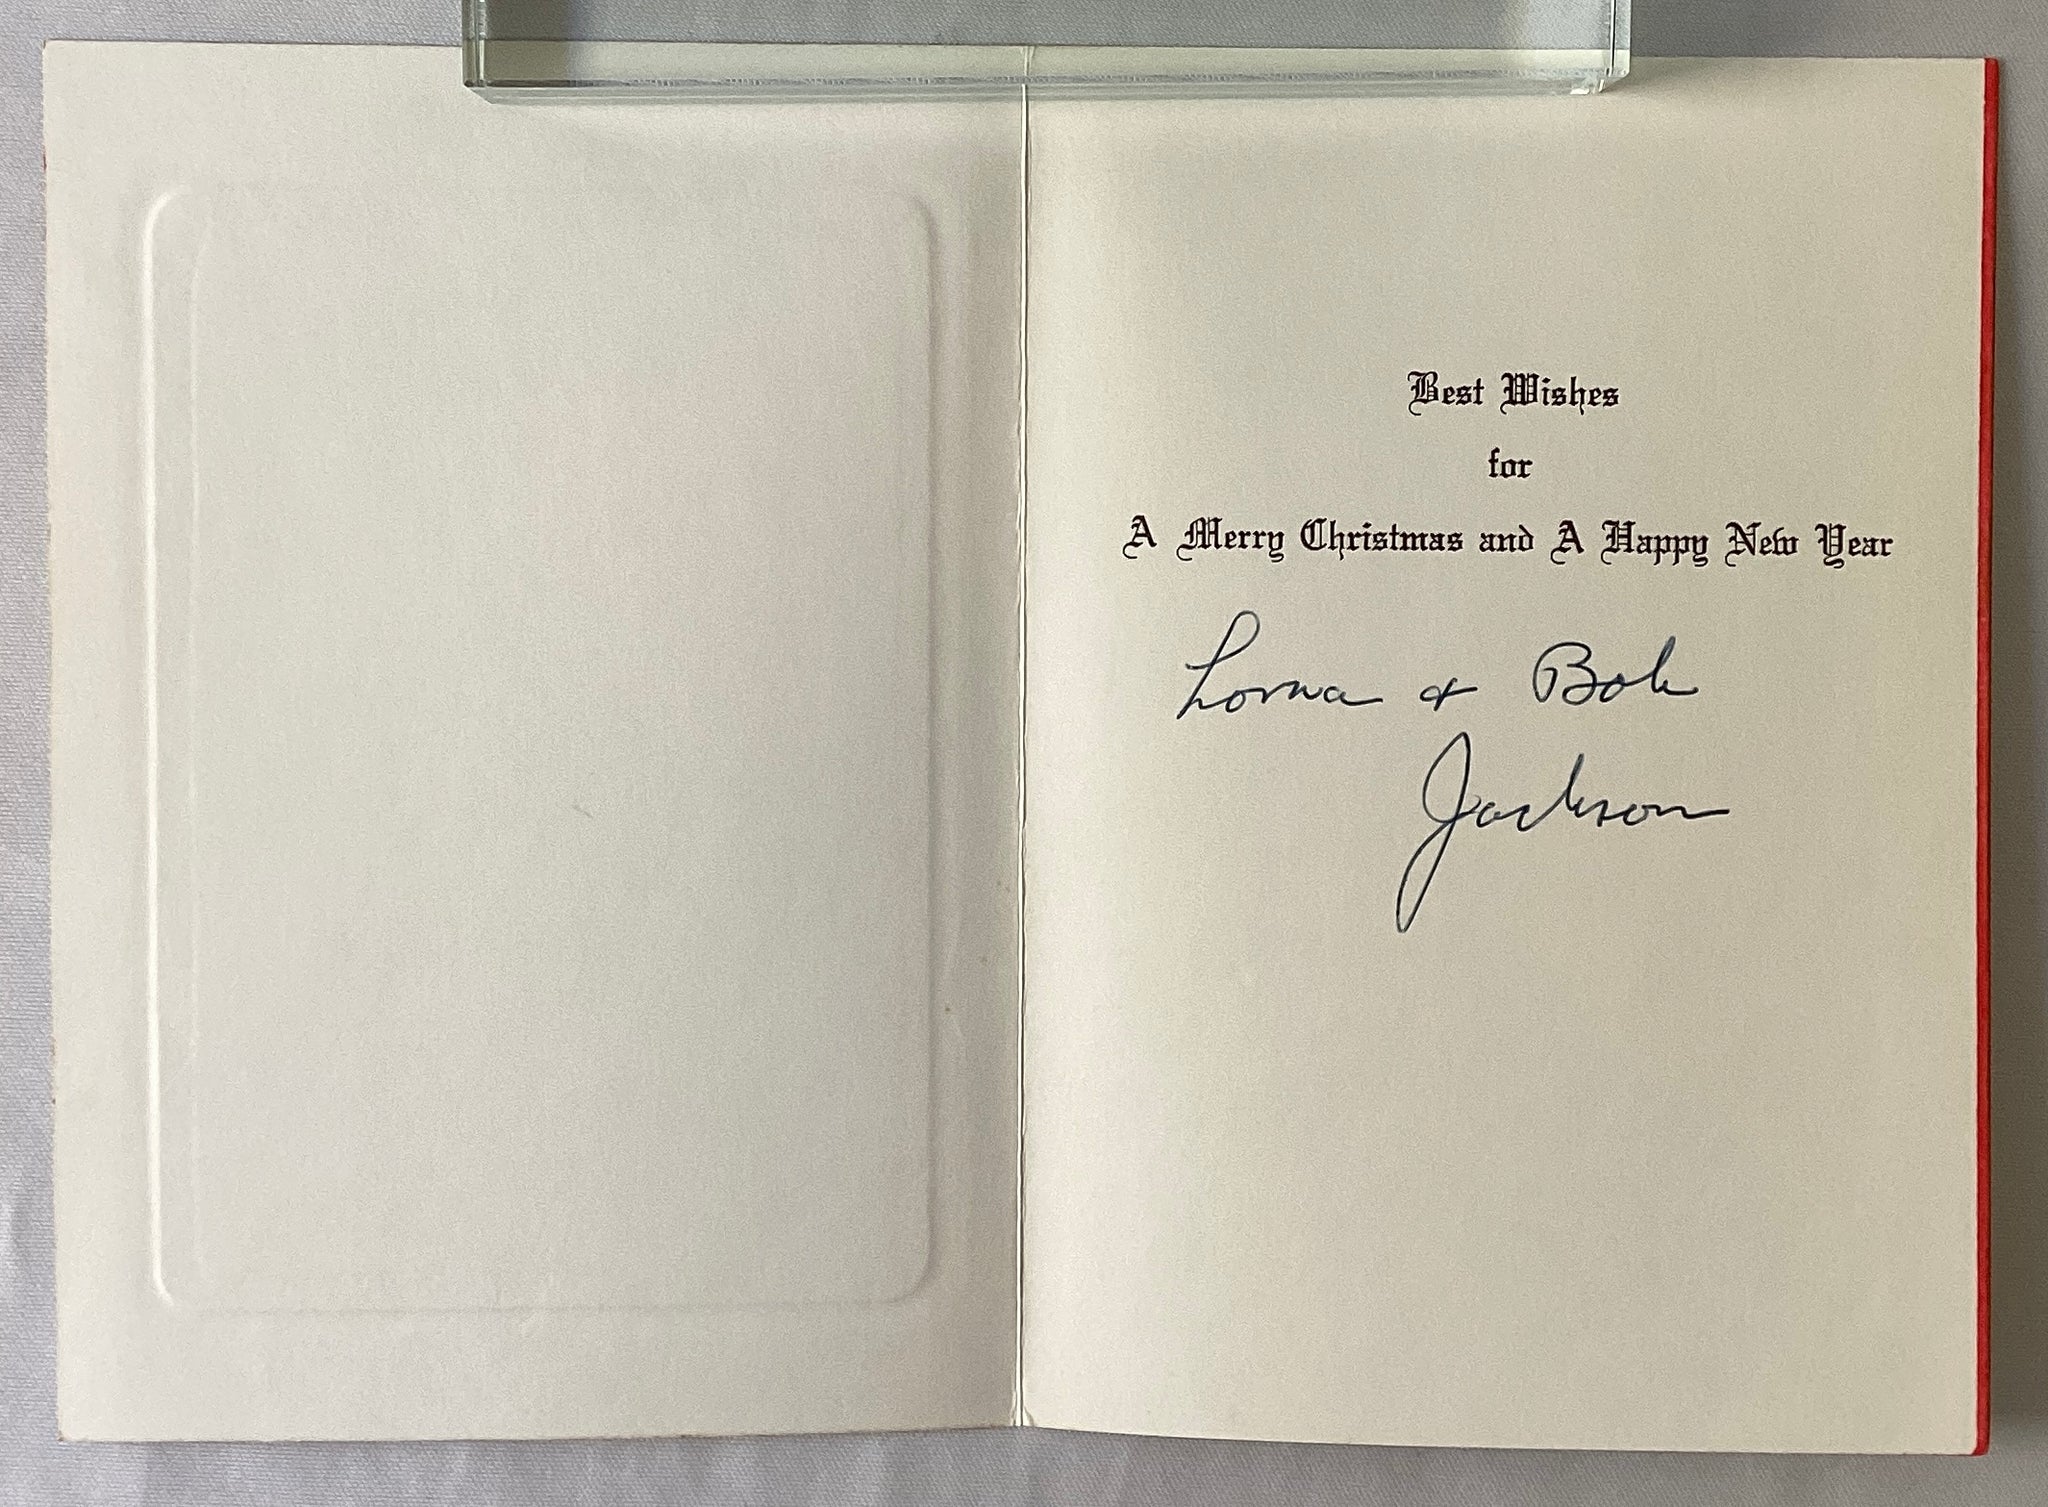 Best Wishes
for
A Merry Christmas and A Happy New Year
Lorna & Bob
Jackson